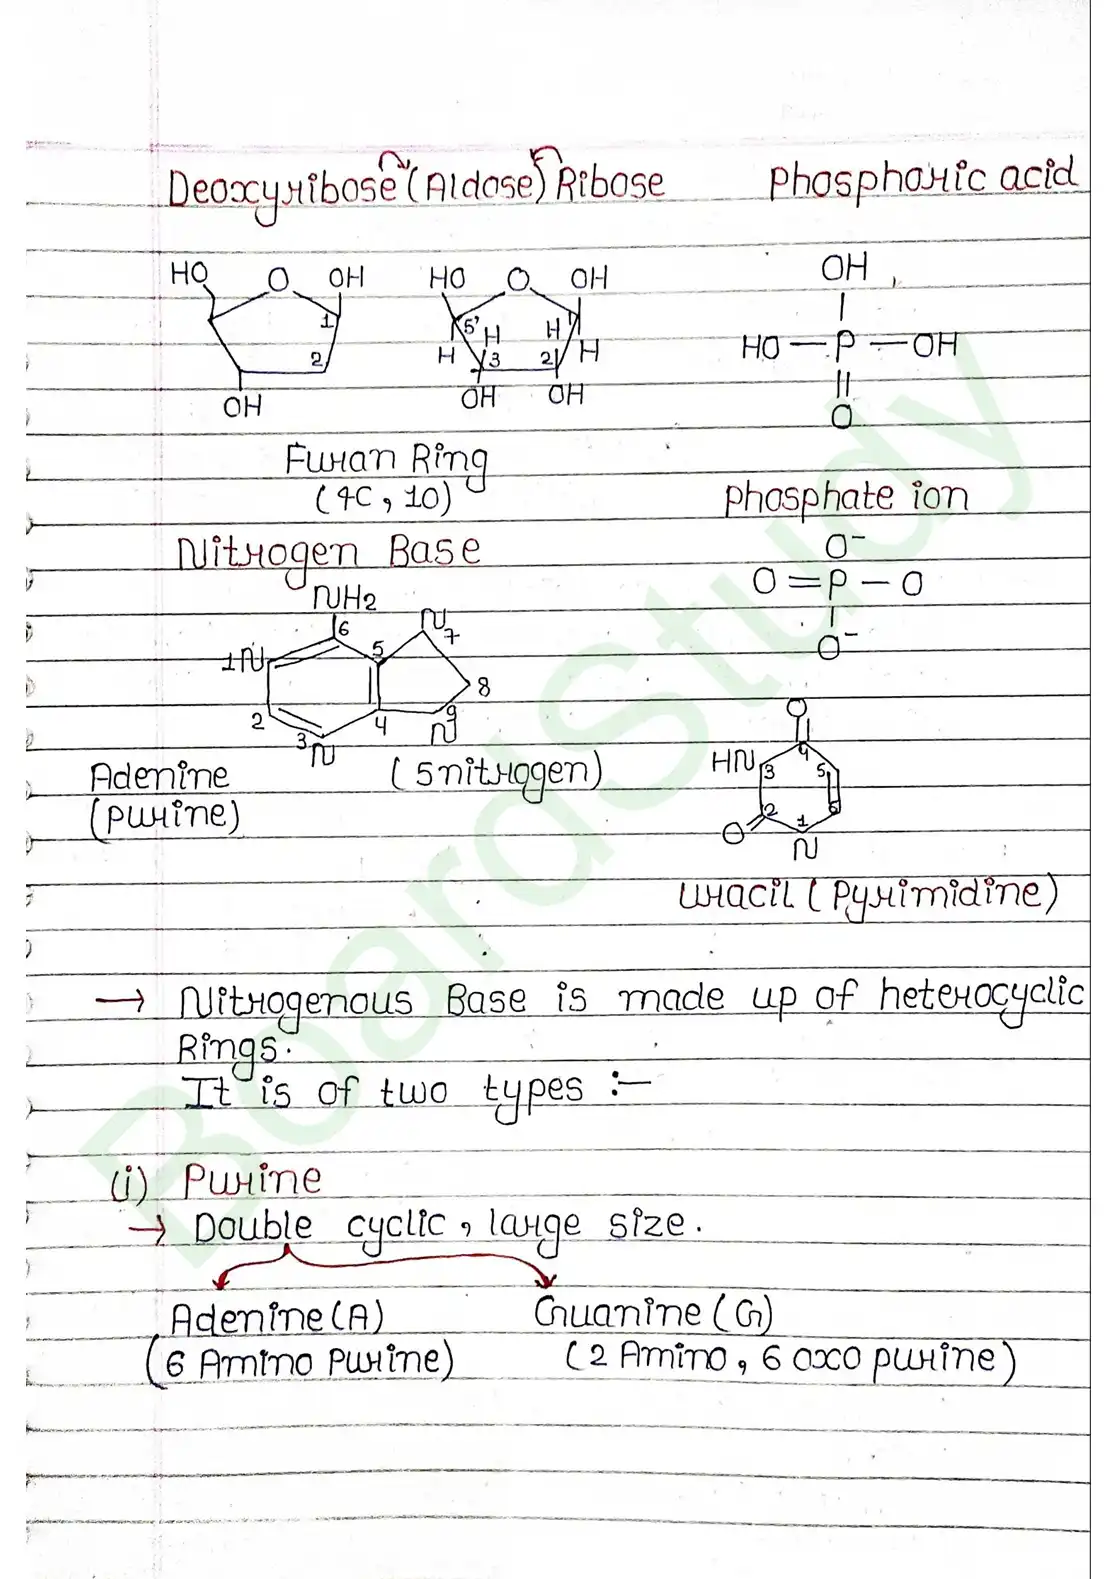 Deoxyribose (Aldose) Ribose Phosphoric acid
HO O OH HO O OH OH
1 5' H H 1
2 H 3 2 H HO — P — OH
OH OH OH O
Furan Ring
(4C, 1O) phosphate ion
Nitrogen Base O⁻
NH2 O = P — O
6 N 7 O⁻
1N 5
8 O
2 4 9 HN 3 4 5
3 N N 2 6
Adenine (5 nitrogen) O 1
(purine) N
Uracil (Pyrimidine)
→ Nitrogenous Base is made up of heterocyclic
Rings.
It is of two types :—
(i) Purine
→ Double cyclic, large size.
Adenine (A) Guanine (G)
(6 Amino Purine) (2 Amino, 6 oxo purine)
BoardStudy